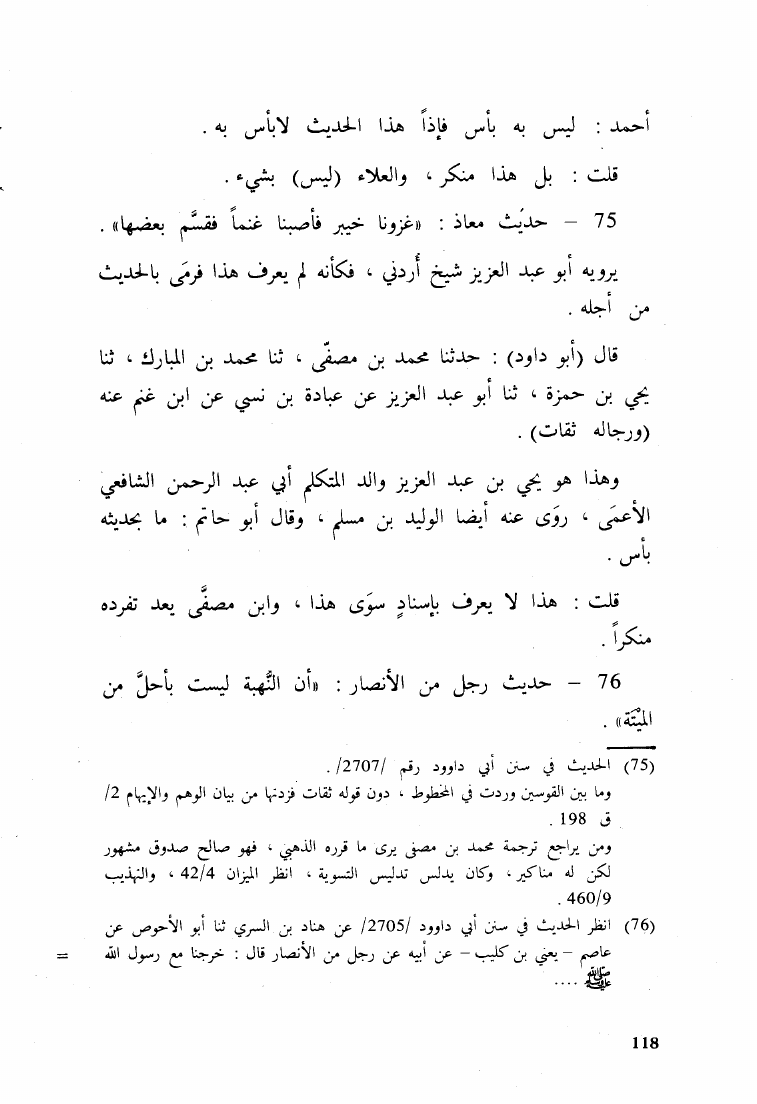 أحمد : ليس به بأس فإذاً هذا الحديث لابأس به .
قلت : بل هذا منكر ، والعلاء (ليس) بشيء .
75 – حديث معاذ : «غزونا خيبر فأصبنا غنماً فقسَّم بعضها» .
يرويه أبو عبد العزيز شيخ أردني ، فكأنه لم يعرف هذا فرمَى بالحديث
من أجله .
قال (أبو داود) : حدثنا محمد بن مصفَّى ، ثنا محمد بن المبارك ، ثنا
يحيي بن حمزة ، ثنا أبو عبد العزيز عن عبادة بن نسي عن ابن غنم عنه
(ورجاله ثقات) .
وهذا هو يحيي بن عبد العزيز والد المتكلم أبي عبد الرحمن الشافعي
الأعمَى ، روَى عنه أيضا الوليد بن مسلم ، وقال أبو حاتم : ما بحديثه
بأس .
قلت : هذا لا يعرف بإسنادٍ سوَى هذا ، وابن مصفَّى يعد تفرده
منكراً .
76 – حديث رجل من الأنصار : «أن النُّهبة ليست بأحلَّ من
الميْتَة» .
(75) الحديث في سنن أبي داوود رقم /2707/ .
وما بين القوسين وردت في المخطوط ، دون قوله ثقات فزدنها من بيان الوهم والإيهام 2/
ق 198 .
ومن يراجع ترجمة محمد بن مصفى يرى ما قرره الذهبي ، فهو صالح صدوق مشهور
لكن له مناكير ، وكان يدلس تدليس التسوية ، انظر الميزان 42/4 ، والتهذيب
460/9 .
(76) انظر الحديث في سنن أبي داوود /2705/ عن هناد بن السري ثنا أبو الأحوص عن
عاصم – يعني بن كليب – عن أبيه عن رجل من الأنصار قال : خرجنا مع رسول الله =
ﷺ ....
118